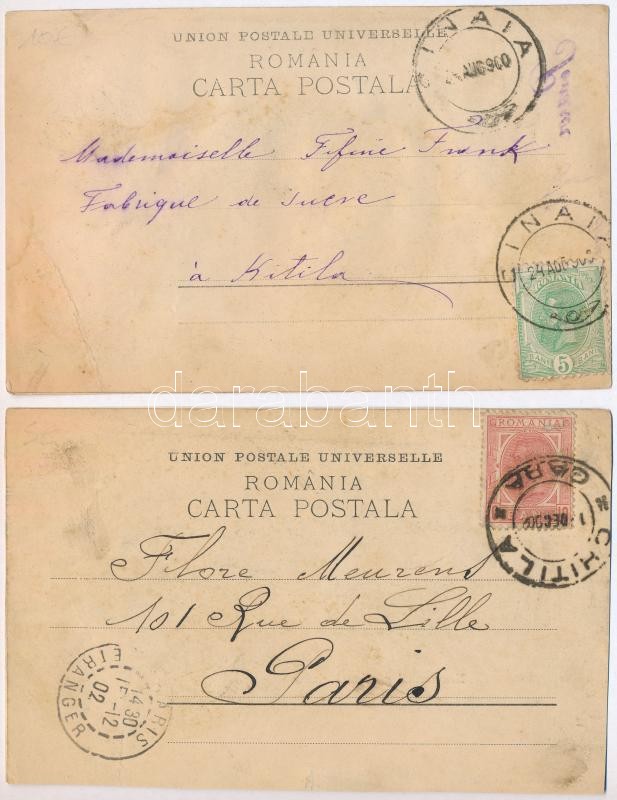 UNION POSTALE UNIVERSELLE
ROMÂNIA
CARTA POSTALA
SINAIA
24 AUG 900
Mademoiselle Fifine Frank
Fabrique de Sucre
à Kitila
INAIA
24 AUG 900
ROMANIA
5
BANI
darabanth
UNION POSTALE UNIVERSELLE
ROMÂNIA
CARTA POSTALA
ROMANIA
CHITILA * GARA *
DEC 902
Flore Meurens
101 Rue de Lille
Paris
PARIS
ETRANGER
14 30
15 -12
02